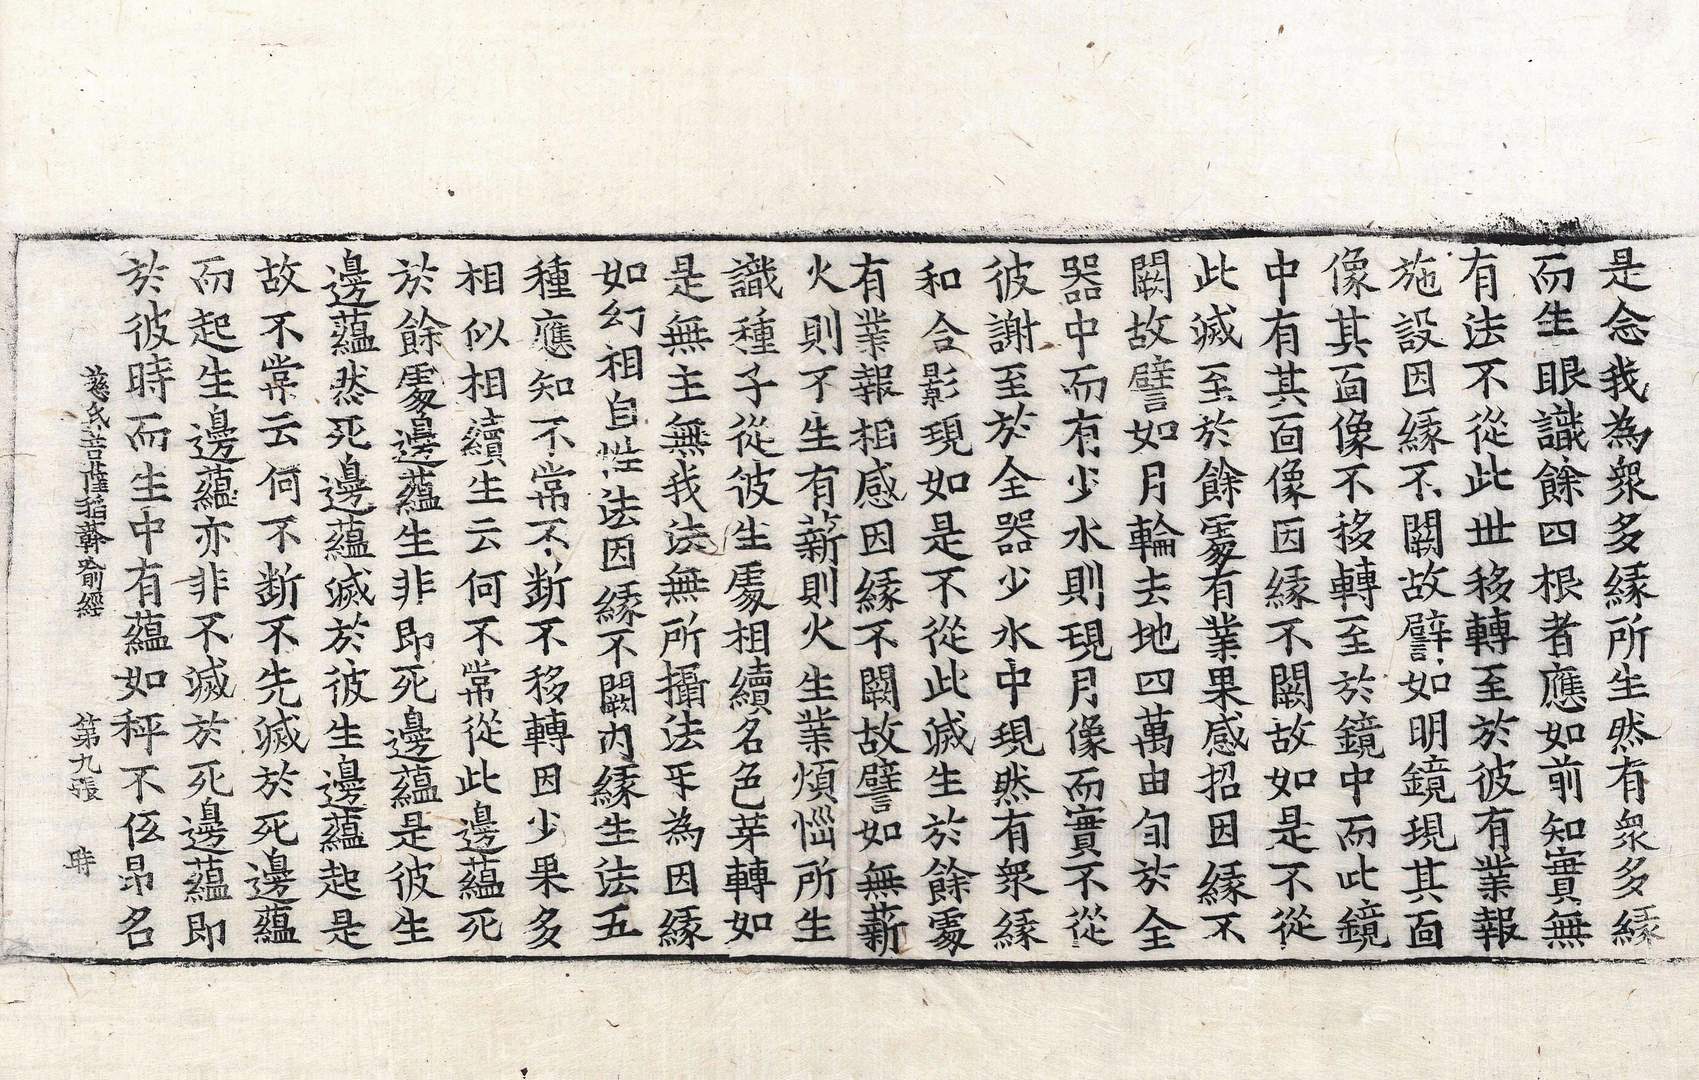 是念我為衆多緣所生然有衆多緣
而生眼識餘四根者應如前知實無
有法不從此丗移轉至於彼有業報
施設因緣不闕故譬如明鏡現其面
像其面像不移轉至於鏡中而此鏡
中有其面像因緣不闕故如是不從
此滅至於餘處有業果感招因緣不
闕故譬如月輪去地四萬由旬於全
器中而有少水則現月像而實不從
彼謝至於全器少水中現然有衆緣
和合影現如是不從此滅生於餘處
有業報相感因緣不闕故譬如無薪
火則不生有薪則火生業煩惱所生
識種子從彼生處相續名色芽轉如
是無主無我法無所攝法𤓰為因緣
如幻相自性法因緣不闕內緣生法五
種應知不常不斷不移轉因少果多
相似相續生云何不常從此邊蘊死
於餘處邊蘊生非即死邊蘊是彼生
邊蘊然死邊蘊滅於彼生邊蘊起是
故不常云何不斷不先滅於死邊蘊
而起生邊蘊亦非不滅於死邊蘊即
於彼時而生中有蘊如秤不低昂名
慈氏菩薩稻䕪喻經 第九張 時